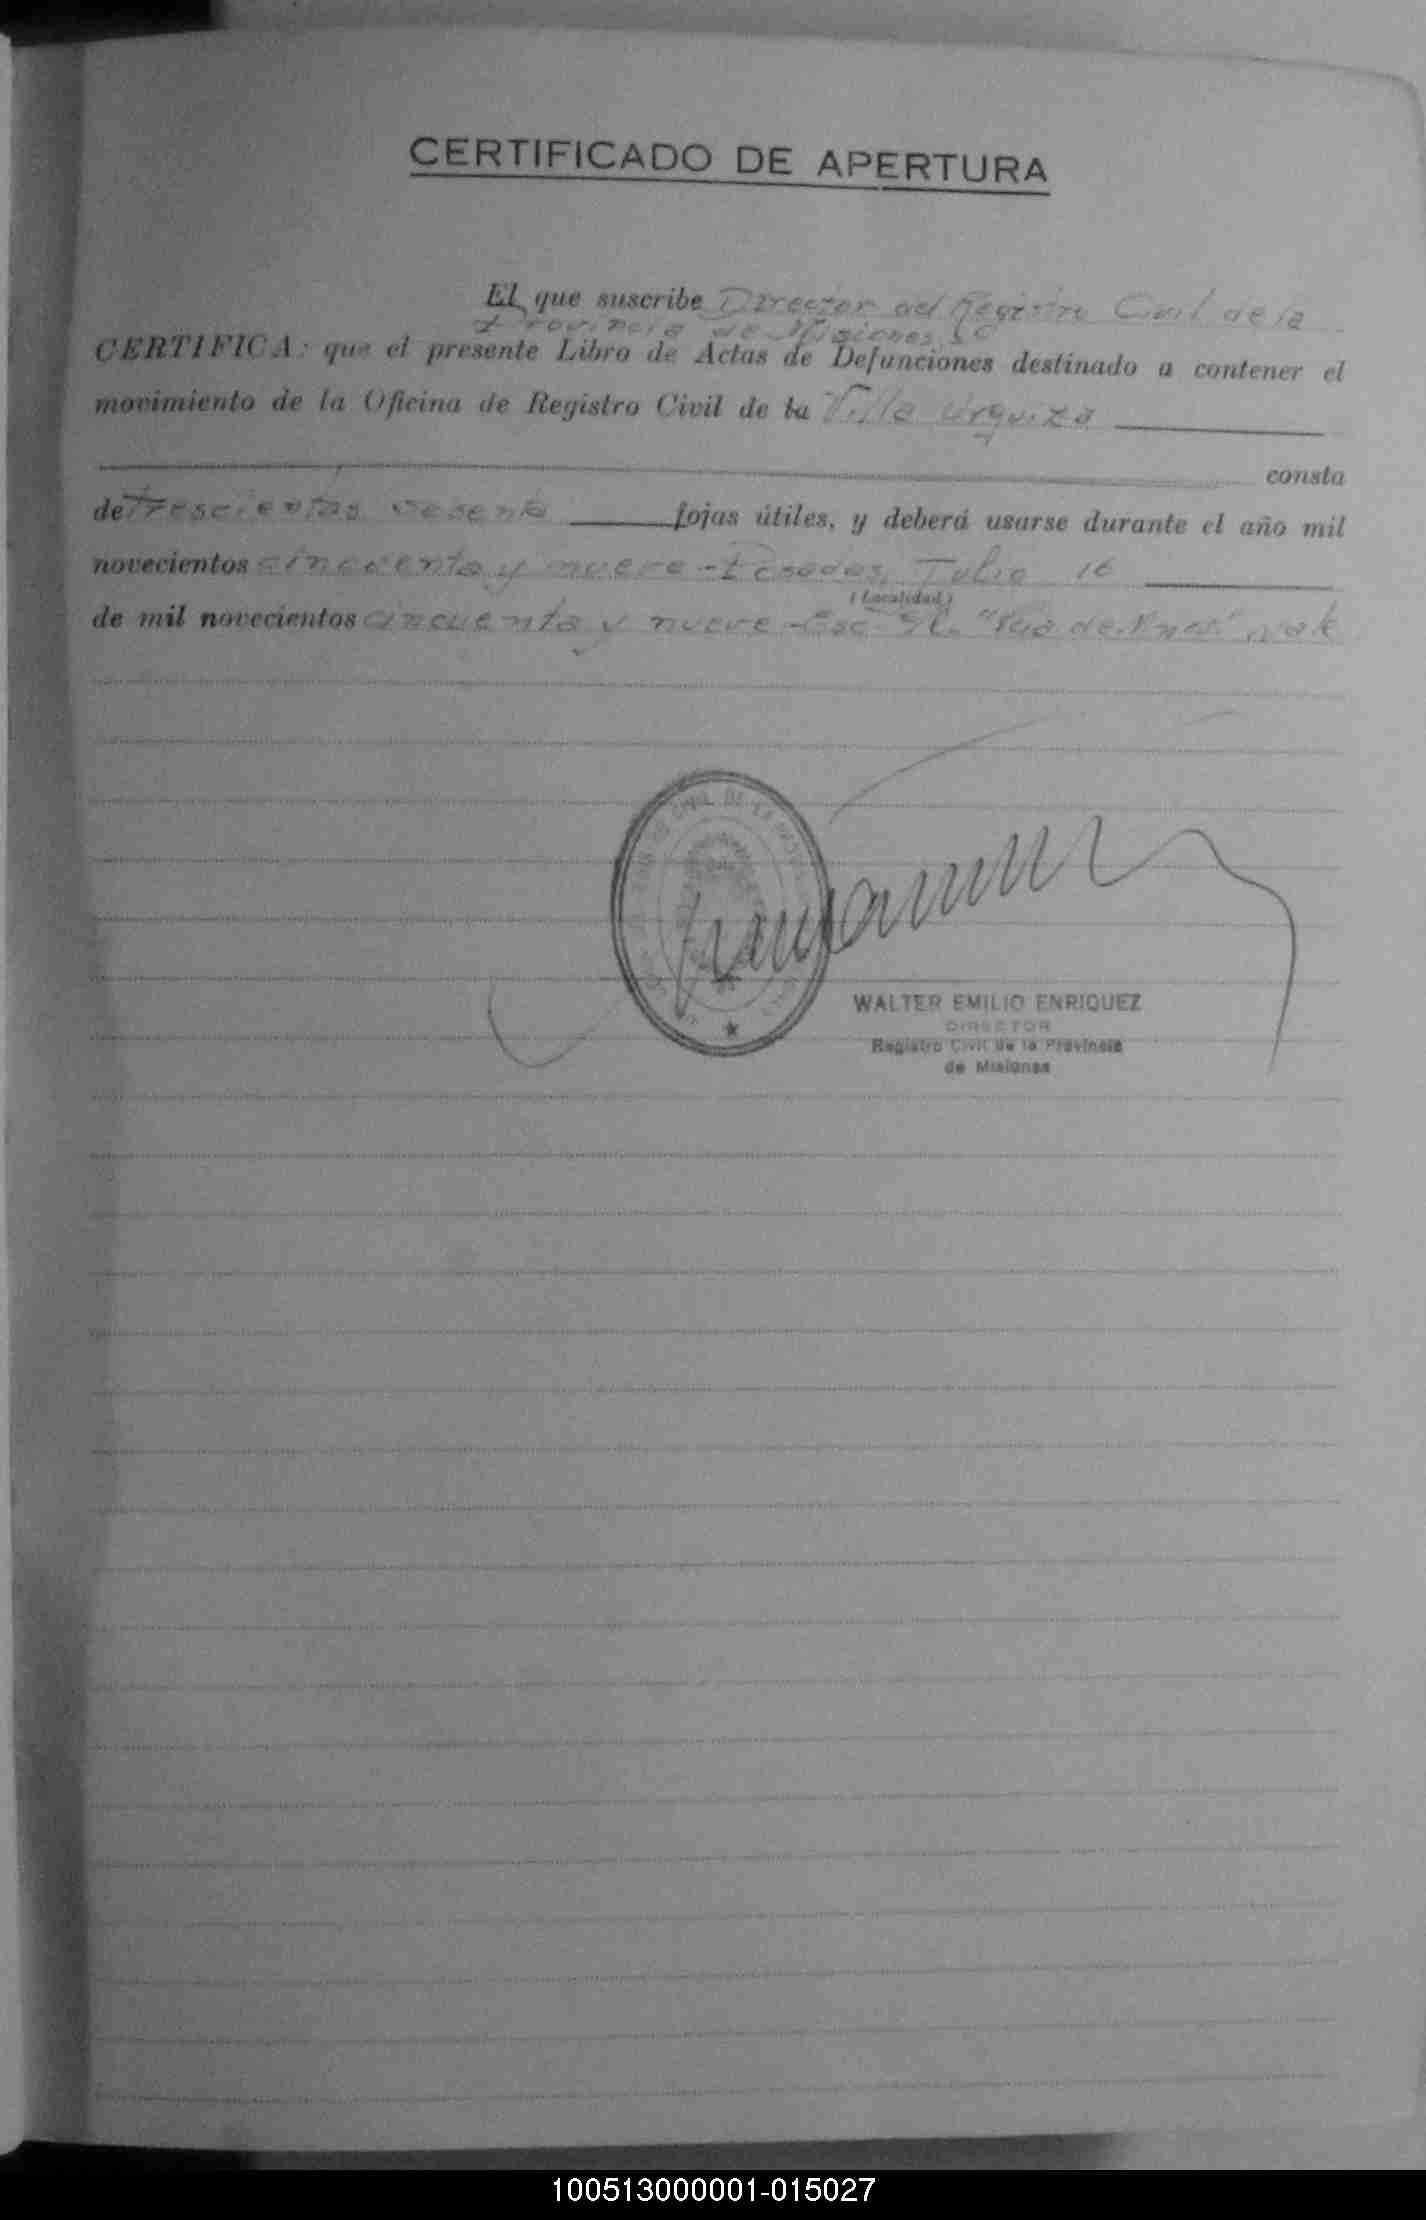 CERTIFICADO DE APERTURA
El que suscribe Director del Registro Civil de la
Provincia de Misiones
CERTIFICA: que el presente Libro de Actas de Defunciones destinado a contener el
movimiento de la Oficina de Registro Civil de la Villa Urquiza
consta
de trescientas sesenta fojas útiles, y deberá usarse durante el año mil
novecientos cincuenta y nueve - Posadas, Julio 16
(Localidad)
de mil novecientos cincuenta y nueve - vale
CIVIL DE LA
WALTER EMILIO ENRIQUEZ
DIRECTOR
Registro Civil de la Provincia
de Misiones
100513000001-015027